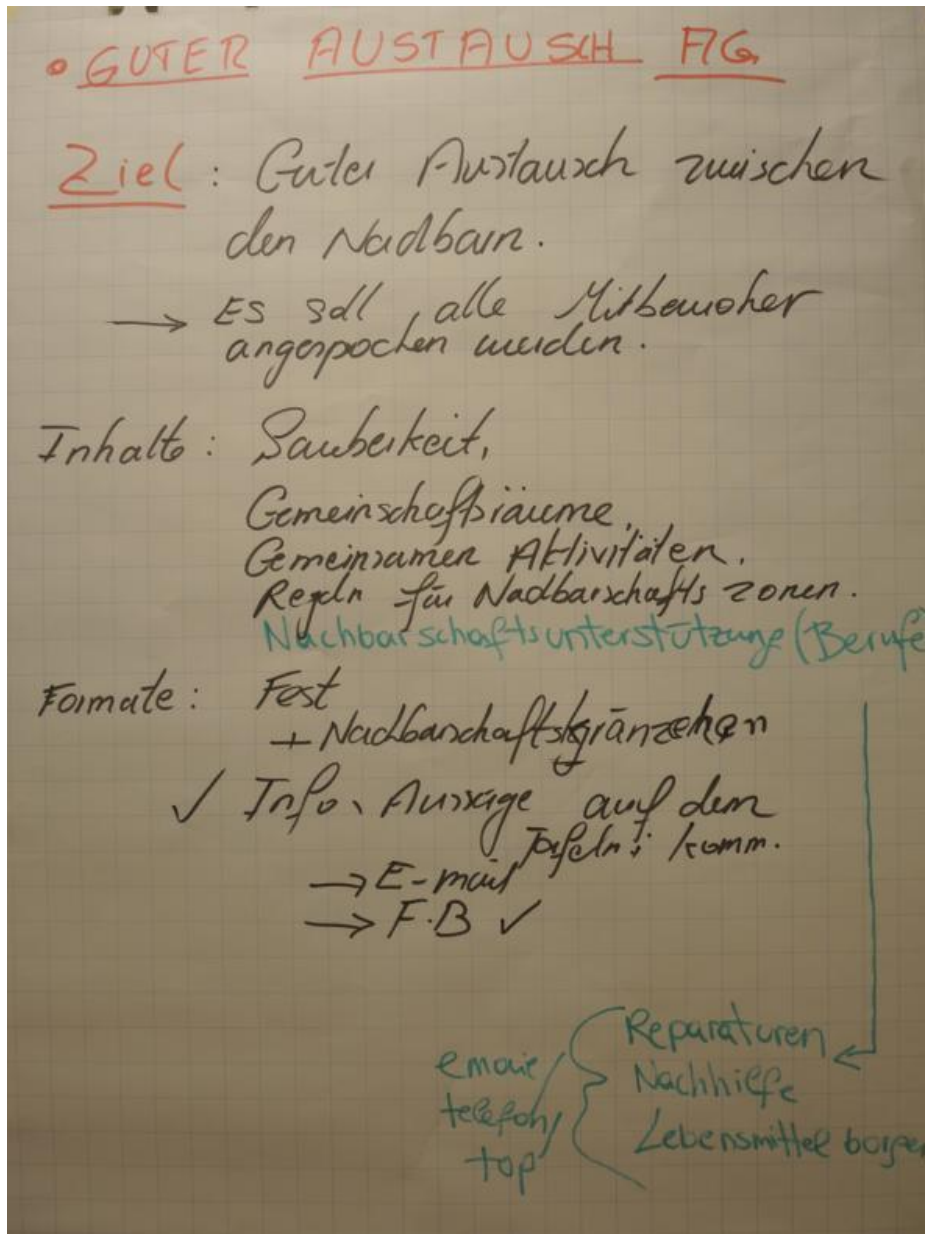 • GUTER AUSTAUSCH AG
Ziel: Guter Austausch zwischen
den Nachbarn.
→ Es soll, alle Mitbewoher
angespochen werden.
Inhalte: Sauberkeit,
Gemeinschaftsräume,
Gemeinsamen Aktivitäten.
Regeln für Nachbarschafts zonen.
Nachbarschaftsunterstützung (Berufe
Formate: Fest
+ Nachbarschaftskränzchen
✓ Info, Aussage auf dem
Tafeln; komm.
→ E-mail
→ F.B ✓
Reparaturen
emaie
Nachhilfe
telefon/
Lebensmittel borgen
top